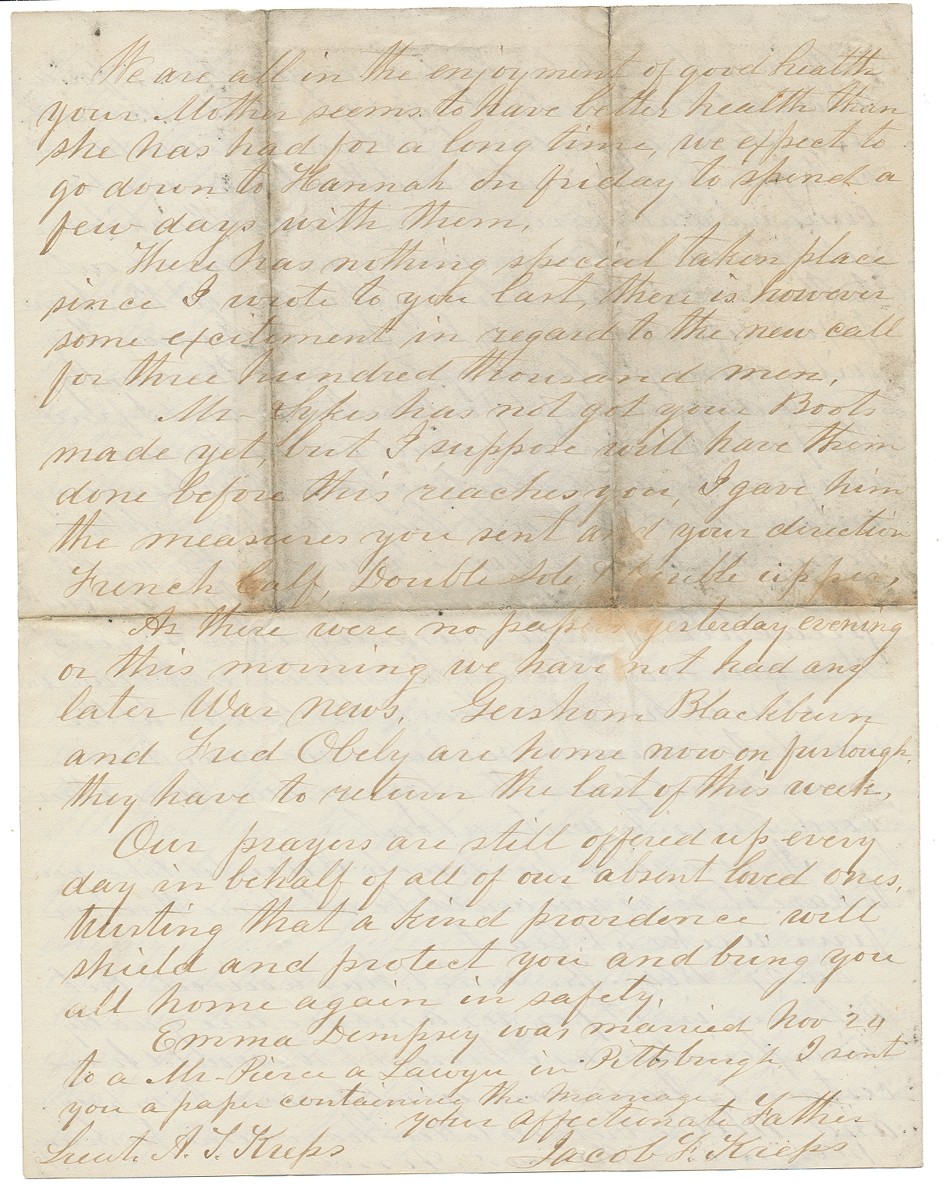 We are all in the enjoyment of good health
your Mother seems to have better health than
she has had for a long time, we expect to
go down to Hannah on friday to spend a
few days with them.
There has nothing special taken place
since I wrote to you last, there is however
some excitement in regard to the new call
for three hundred thousand men.
Mr- Sykes has not got your Boots
made yet, but I suppose will have them
done before this reaches you, I gave him
the measures you sent and your direction
French Calf, Double sole, Double upper,
As there were no papers yesterday evening
or this morning we have not had any
later War news. Gershom Blackburn
and Fred Obely are home now on furlough,
they have to return the last of this week,
Our prayers are still offered up every
day in behalf of all of our absent loved ones,
trusting that a kind providence will
shield and protect you and bring you
all home again in safety.
Emma Dempsey was married Nov 24
to a Mr- Pierce a Lawyer in Pittsburgh I sent
you a paper containing the Marriage
your affectionate Father
Lieut. A. T. Kreps Jacob F. Kreps